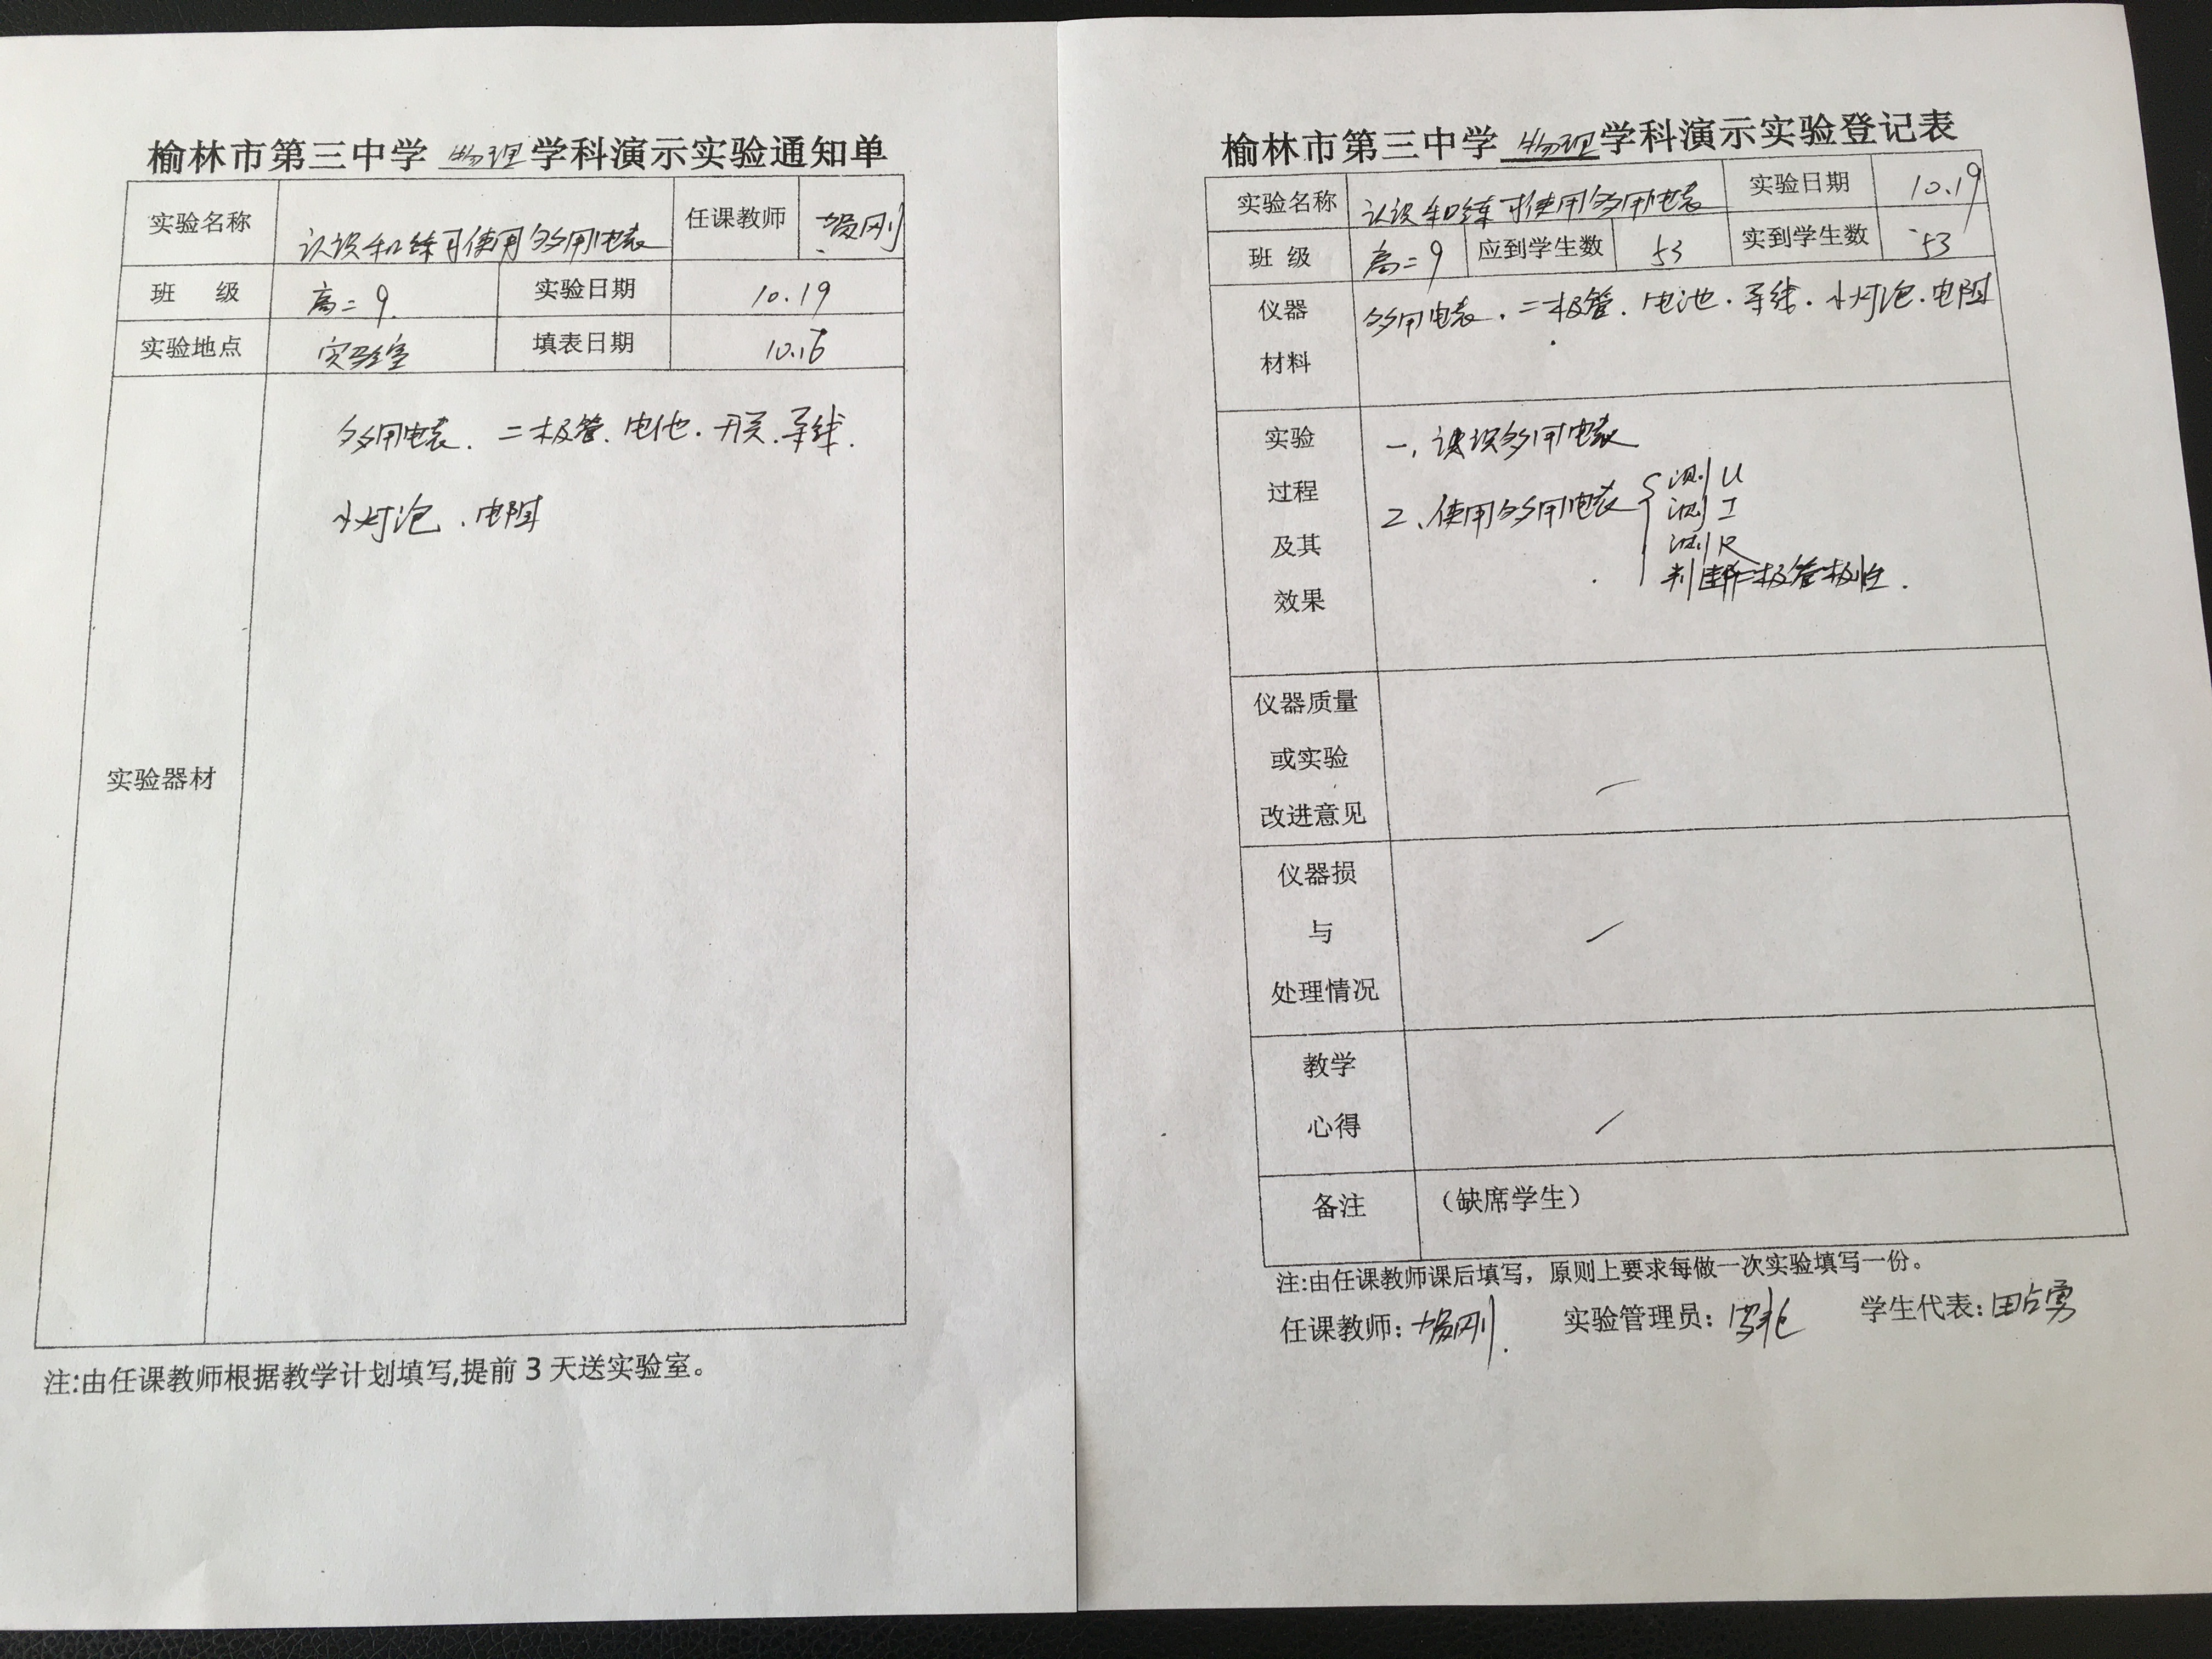 榆林市第三中学 物理 学科演示实验通知单
实验名称 认识和练习使用多用电表 任课教师 贺刚
班 级 高二9. 实验日期 10.19
实验地点 实验室 填表日期 10.16
实验器材
多用电表、二极管、电池、开关、导线.
小灯泡、电阻
注:由任课教师根据教学计划填写,提前3天送实验室。
榆林市第三中学 物理 学科演示实验登记表
实验名称 认识和练习使用多用电表 实验日期 10.19
班 级 高二9 应到学生数 53 实到学生数 53
仪器
材料
多用电表、二极管、电池、导线、小灯泡、电阻
实验
过程
及其
效果
一、认识多用电表
2、使用多用电表
测U
测I
测R
判断二极管极性.
仪器质量
或实验
改进意见
仪器损
与
处理情况
教学
心得
备注 （缺席学生）
注:由任课教师课后填写，原则上要求每做一次实验填写一份。
任课教师: 贺刚 实验管理员: 学生代表: 田占勇